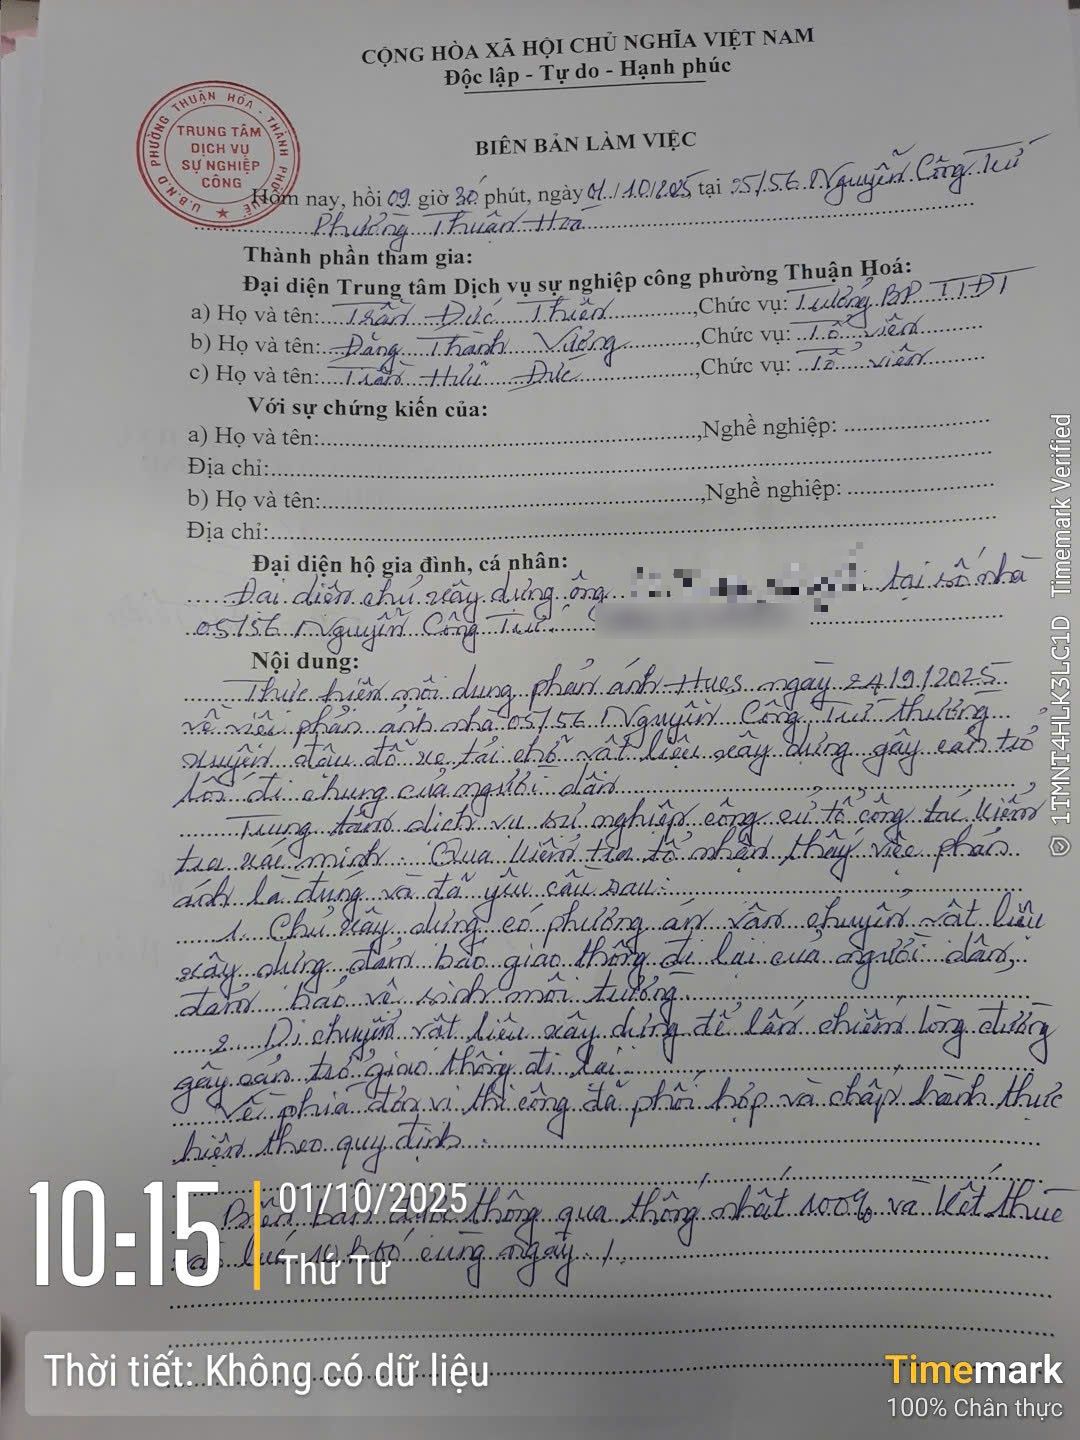 CỘNG HÒA XÃ HỘI CHỦ NGHĨA VIỆT NAM
Độc lập - Tự do - Hạnh phúc
U.B.N.D PHƯỜNG THUẬN HÓA - THÀNH PHỐ HUẾ
TRUNG TÂM
DỊCH VỤ
SỰ NGHIỆP
CÔNG
BIÊN BẢN LÀM VIỆC
Hôm nay, hồi 09 giờ 30 phút, ngày 01/10/2025 tại 05/56 Nguyễn Công Trứ
Phường Thuận Hoá
Thành phần tham gia:
Đại diện Trung tâm Dịch vụ sự nghiệp công phường Thuận Hoá:
a) Họ và tên: Trần Đức Thiên, Chức vụ: Trưởng BP TTĐT
b) Họ và tên: Đặng Thành Vương, Chức vụ: Tổ viên
c) Họ và tên: Trần Hữu Đức, Chức vụ: Tổ viên
Với sự chứng kiến của:
a) Họ và tên:, Nghề nghiệp:
Địa chỉ:
b) Họ và tên:, Nghề nghiệp:
Địa chỉ:
Đại diện hộ gia đình, cá nhân:
Đại diện chủ xây dựng ông tại số nhà
05/56 Nguyễn Công Trứ.
Nội dung:
Thực hiện nội dung phản ánh Hues ngày 24/9/2025
về việc phản ánh nhà 05/56 Nguyễn Công Trứ thường
xuyên đậu đỗ xe tải chở vật liệu xây dựng gây cản trở
lối đi chung của người dân
Trung tâm dịch vụ sự nghiệp công cử tổ công tác kiểm
tra xác minh. Qua kiểm tra tổ nhận thấy việc phản
ánh là đúng và đã yêu cầu sau:
1. Chủ xây dựng có phương án vận chuyển vật liệu
xây dựng đảm bảo giao thông đi lại của người dân,
đảm bảo vệ sinh môi trường.
2. Di chuyển vật liệu xây dựng để lấn chiếm lòng đường
gây cản trở giao thông đi lại.
Về phía đơn vị thi công đã phối hợp và chấp hành thực
hiện theo quy định.
Biên bản được thông qua thống nhất 100% và kết thúc
vào lúc 10h00 cùng ngày./.
10:15
01/10/2025
Thứ Tư
Thời tiết: Không có dữ liệu
Timemark
100% Chân thực
1TMNI4HLK3LC1D Timemark Verified